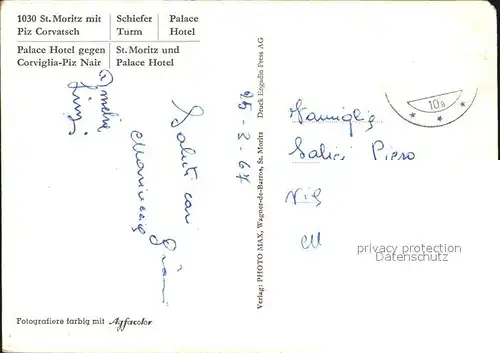 1030 St. Moritz mit
Piz Corvatsch
Schiefer
Turm
Palace
Hotel
Palace Hotel gegen
Corviglia-Piz Nair
St. Moritz und
Palace Hotel
Saluti cari
25-2-67
Verlag: PHOTO MAX, Wagner-de-Barros, St. Moritz Druck Engadin Press AG
10a
Famiglia
Salici Piero
privacy protection
Datenschutz
Fotografiere farbig mit Agfacolor